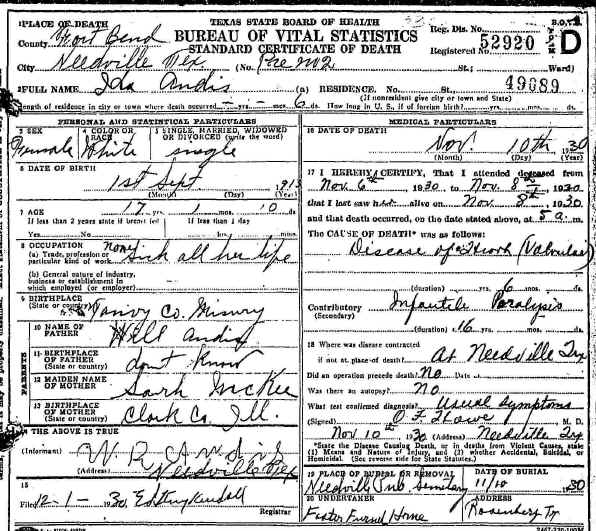 TEXAS STATE BOARD OF HEALTH
BUREAU OF VITAL STATISTICS
STANDARD CERTIFICATE OF DEATH
1 PLACE OF DEATH
County Fort Bend
City Needville Tex (No. St.; Ward)
Reg. Dis. No.
Registered No. 52920 D
2 FULL NAME Ida Andis (a) RESIDENCE. No. St., 49089
(If nonresident give city or town and State)
Length of residence in city or town where death occurred yrs. mos. 6 ds. How long in U. S., if of foreign birth? yrs. mos. ds.
PERSONAL AND STATISTICAL PARTICULARS
3 SEX Female
4 COLOR OR RACE White
5 SINGLE, MARRIED, WIDOWED OR DIVORCED (write the word) single
6 DATE OF BIRTH
1st Sept 1913
(Month) (Day) (Year)
7 AGE 17 yrs. 1 mos. 10 ds.
If less than 2 years state if breast fed If less than 1 day
Yes No hrs. min.
8 OCCUPATION none
(a) Trade, profession or particular kind of work Sick all her life
(b) General nature of industry, business or establishment in which employed (or employer)
9 BIRTHPLACE
(State or country) Taney Co. Missury
PARENTS
10 NAME OF FATHER Will Andis
11 BIRTHPLACE OF FATHER (State or country) dont Know
12 MAIDEN NAME OF MOTHER Sarh McKee
13 BIRTHPLACE OF MOTHER (State or country) Clark Co. Ill.
14 THE ABOVE IS TRUE
(Informant) W. R. Andis
(Address) Needville Tex
15
Filed 12-1-1930
Registrar
MEDICAL PARTICULARS
16 DATE OF DEATH
Nov. 10th 1930
(Month) (Day) (Year)
17 I HEREBY CERTIFY, That I attended deceased from
Nov. 6th 1930 to Nov. 8th 1930
that I last saw her alive on Nov. 8th, 1930
and that death occurred, on the date stated above, at 5 a. m.
The CAUSE OF DEATH* was as follows:
Disease of Heart (Valvular)
(duration) 6 yrs. mos. ds.
Contributory Infantile Paralysis
(Secondary)
(duration) 16 yrs. mos. ds.
18 Where was disease contracted
if not at place of death? At Needville Tex
Did an operation precede death? No Date of
Was there an autopsy? No
What test confirmed diagnosis? Usual Symptoms
(Signed) M. D.
Nov 10th 1930 (Address) Needville Tex
*State the Disease Causing Death, or in deaths from Violent Causes, state (1) Means and Nature of Injury, and (2) whether Accidental, Suicidal, or Homicidal. (See reverse side for State Statutes).
19 PLACE OF BURIAL OR REMOVAL
Needville Pub. Semetary
DATE OF BURIAL
11/10 1930
20 UNDERTAKER
Foster Funeral Home
ADDRESS
Rosenberg Tx